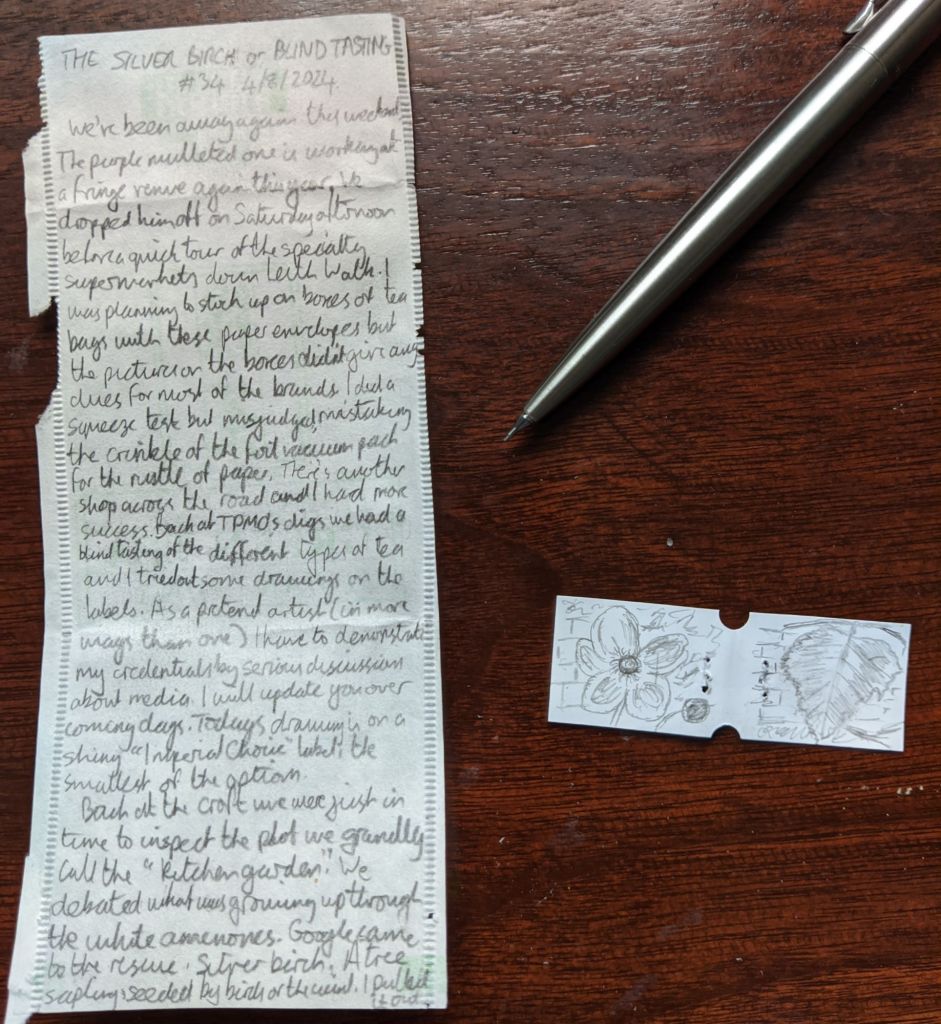 THE SILVER BIRCH or BLIND TASTING
#34 4/8/2024.
We've been away again this weekend
The people mulleted one is working at
a fringe venue again this year. We
dropped him off on Saturday afternoon
before a quick tour of the specialty
supermarkets down Leith Walk. I
was planning to stock up on boxes of tea
bags with these paper envelopes but
the pictures on the boxes didn't give any
clues for most of the brands. I did a
squeeze test but misjudged, mistaking
the crinkle of the foil vacuum pack
for the rustle of paper. There's another
shop across the road and I had more
success. Back at TPMO's digs we had a
blind tasting of the different types of tea
and I tried out some drawings on the
labels. As a pretend artist (in more
ways than one) I have to demonstrate
my credentials by serious discussion
about media. I will update you over
coming days. Todays drawing is on a
shiny "Imperial Choice" label: the
smallest of the options.
Back at the croft we were just in
time to inspect the plot we grandly
call the "Kitchen garden". We
debated what was growing up through
the white amenones. Google came
to the rescue. Silver birch. A tree
sapling seeded by birch or the wind. I pulled
it out.